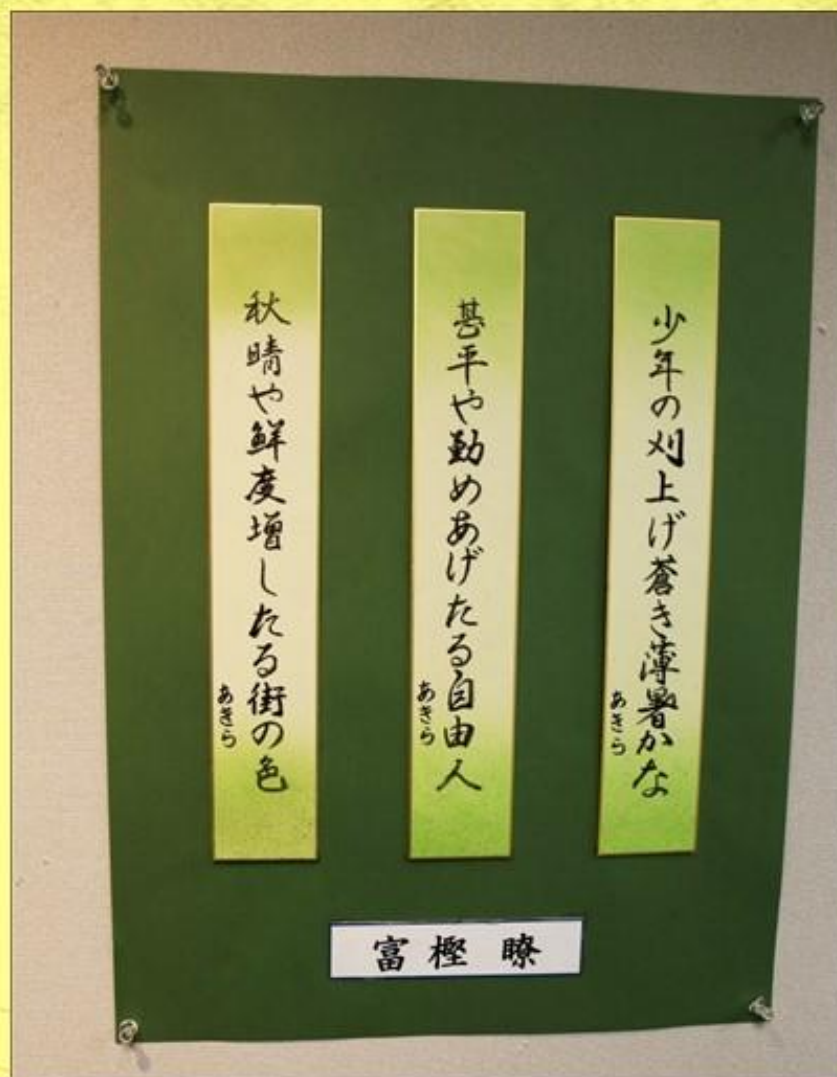 少年の刈上げ蒼き薄暑かな
あきら
甚平や勤めあげたる自由人
あきら
秋晴や鮮度増したる街の色
あきら
富樫 瞭